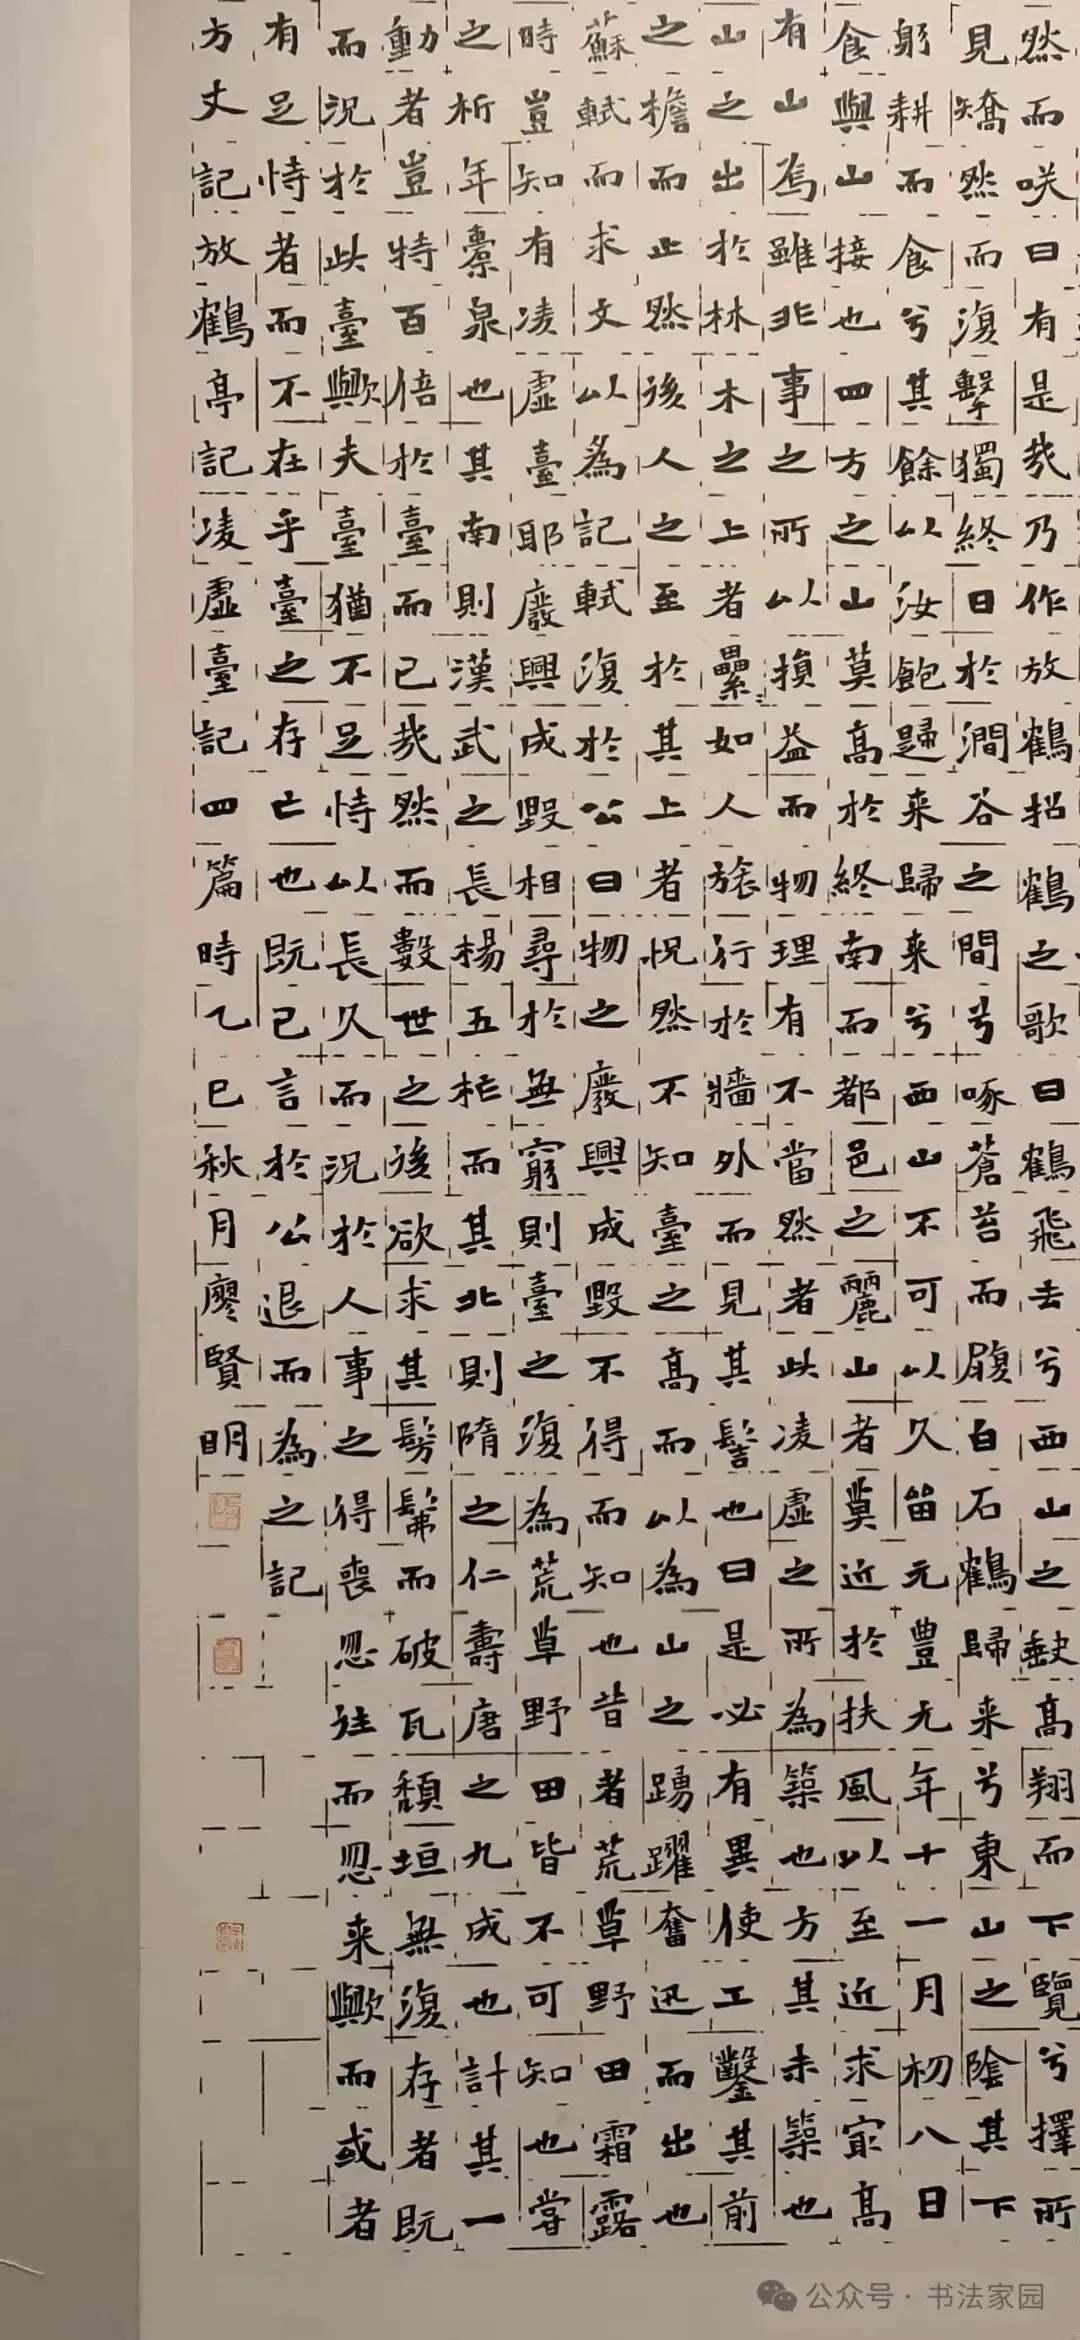 然而咲曰有是哉乃作放鶴招鶴之歌曰鶴飛去兮西山之缺高翔而下覽兮擇所
見矯然而復擊獨終日於澗谷之間兮啄蒼苔而履白石鶴歸来兮東山之陰其下
躬耕而食兮其餘以汝飽歸来歸来兮西山不可以久留元豐元年十一月初八日
食與山接也四方之山莫高於終南而都邑之麗山者莫近於扶風以至近求最高
有山焉雖非事之所以損益而物理有不當然者此凌虛之所為築也方其未築也
山之出於林木之上者纍〻如人旅行於牆外而見其髻也曰是必有異使工鑿其前
之檐而止然後人之至於其上者怳然不知臺之高而以為山之踴躍奮迅而出也
蘇軾而求文以為記軾復於公曰物之廢興成毀不得而知也昔者荒草野田霜露
時豈知有凌虛臺耶廢興成毀相尋於無窮則臺之復為荒草野田皆不可知也嘗
之祈年橐泉也其南則漢武之長楊五柞而其北則隋之仁壽唐之九成也計其一
動者豈特百倍於臺而已哉然而數世之後欲求其髣髴而破瓦頹垣無復存者既
而況於此臺歟夫臺猶不足恃以長久而況於人事之得喪忽往而忽来歟而或者
有足恃者而不在乎臺之存亡也既已言於公退而為之記
方丈記放鶴亭記凌虛臺記四篇時乙巳秋月廖賢明
公众号·书法家园